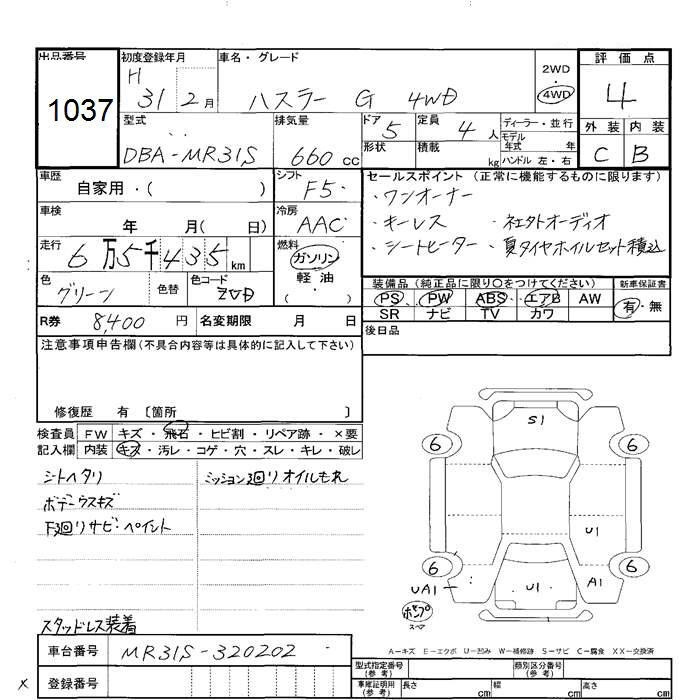 出品番号 1037
初度登録年月 H 31 2月
車名・グレード ハスラー G 4WD
2WD 4WD
評価点 4
型式 DBA-MR31S
排気量 660 cc
ドア 5 形状
定員 4人 積載 kg
ディーラー・並行
モデル年式 年式
ハンドル 左・右
外装 内装
C B
車歴 自家用・( )
シフト F5
車検 年 月( 日)
冷房 AAC
走行 6万5千435km
燃料 ガソリン 軽油 ・( )
色 グリーン 色替 色コード ZVD
R券 8,400円 名変期限 月 日
セールスポイント (正常に機能するものに限ります)
・ワンオーナー
・キーレス ・社外オーディオ
・シートヒーター ・夏タイヤホイルセット積込
装備品 (純正品に限り○をつけてください) 新車保証書
PS PW ABS エアB AW 有・無
SR ナビ TV カワ
後日品
注意事項申告欄 (不具合内容等は具体的に記入して下さい)
修復歴 有 〔箇所 〕
検査員 FW キズ・飛石・ヒビ割・リペア跡・×要
記入欄 内装 キズ・汚レ・コゲ・穴・スレ・キレ・破レ
シートヘタリ ミッション廻りオイルもれ
ボデーウスキズ
下廻りサビ・ペイント
スタッドレス装着
S1
6 6
U1
6 6
UA1 U1 A1
ポンプ
スペア
A-キズ E-エクボ U-凹み W-補修跡 S-サビ C-腐食 XX-交換済
車台番号 MR31S-320202
x 登録番号
型式指定番号 (参考) 類別区分番号 (参考)
車庫証明用 (参考) 長さ cm 幅 cm 高さ cm